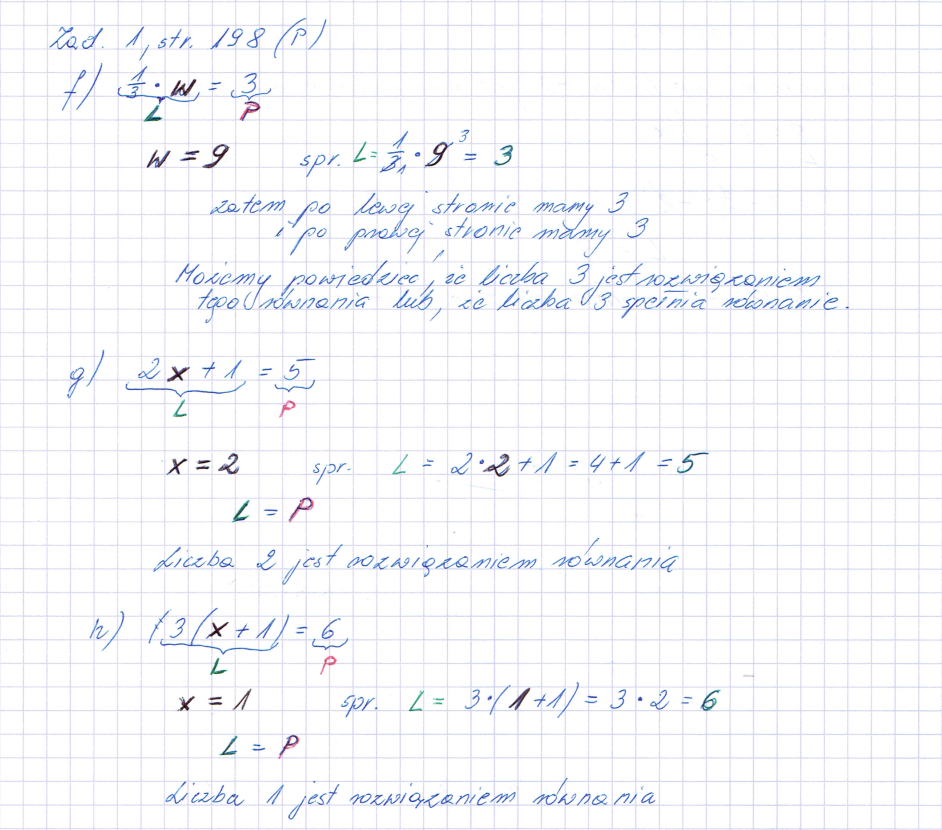 Zad. 1, str. 198 (P)
f) 1/3 · w = 3
L P
w = 9 spr. L = 1/3 1 · 9 3 = 3
zatem po lewej stronie mamy 3
i po prawej stronie mamy 3
Możemy powiedzieć, że liczba 3 jest rozwiązaniem
tego równania lub, że liczba 3 spełnia równanie.
g) 2x + 1 = 5
L P
x = 2 spr. L = 2·2+1 = 4+1 = 5
L = P
Liczba 2 jest rozwiązaniem równania
h) (3(x+1) = 6
L P
x = 1 spr. L = 3·(1+1) = 3·2 = 6
L = P
Liczba 1 jest rozwiązaniem równania